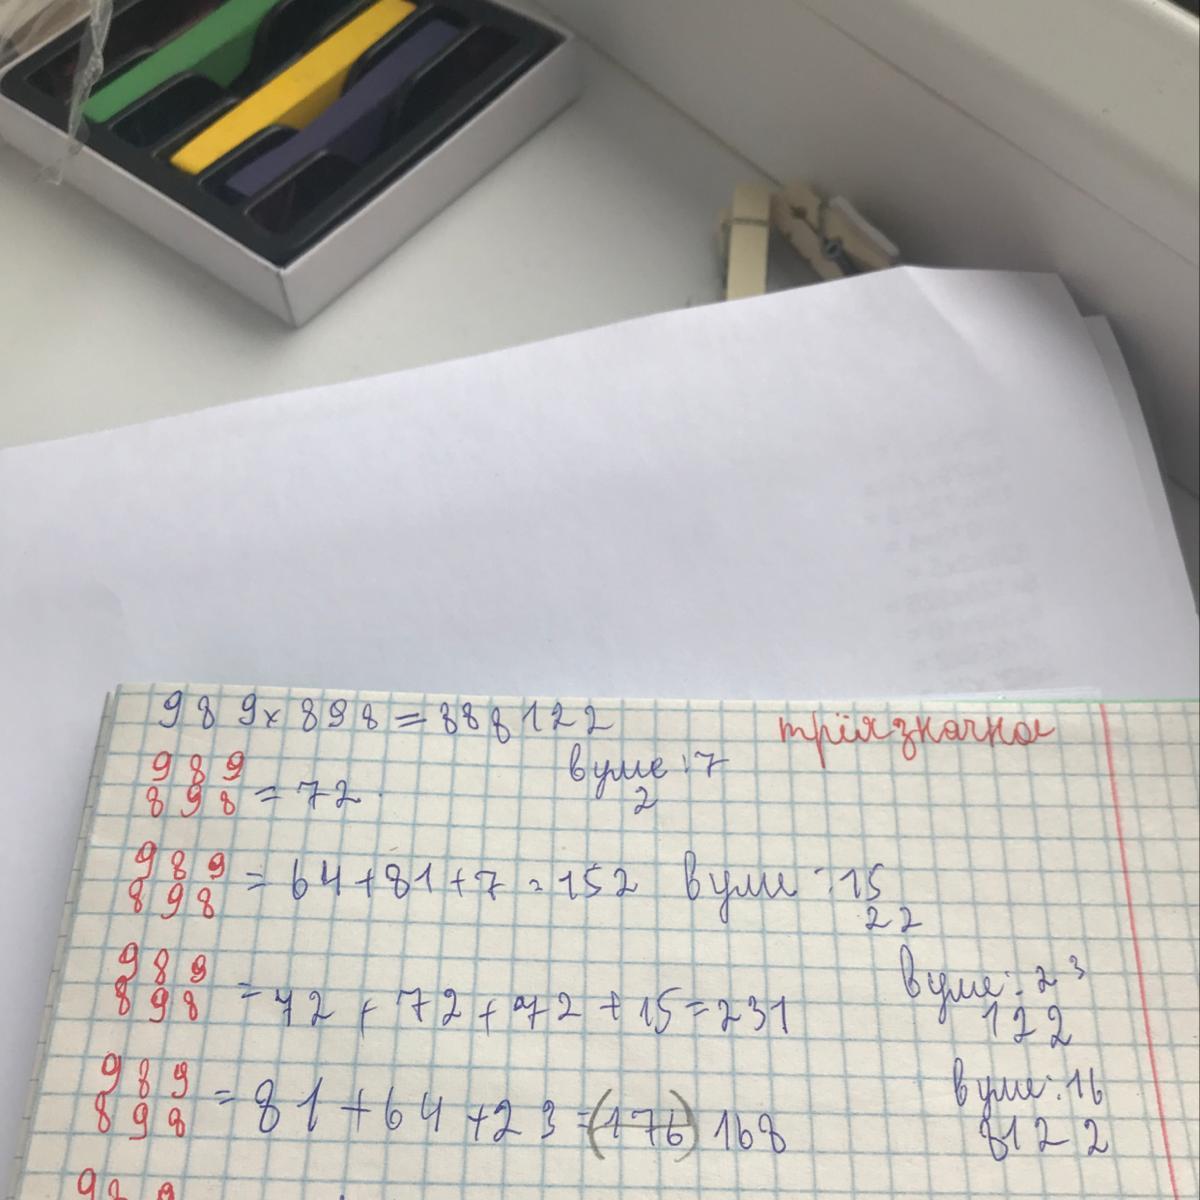 989x898=888122
трёхзначное
989
898 = 72.
в уме: 7
2
989
898 = 64+81+7=152 в уме: 15
22
989
898 = 72+72+72+15=231
в уме: 23
122
989
898 = 81+64+23=(176) 168
в уме: 16
8122
989